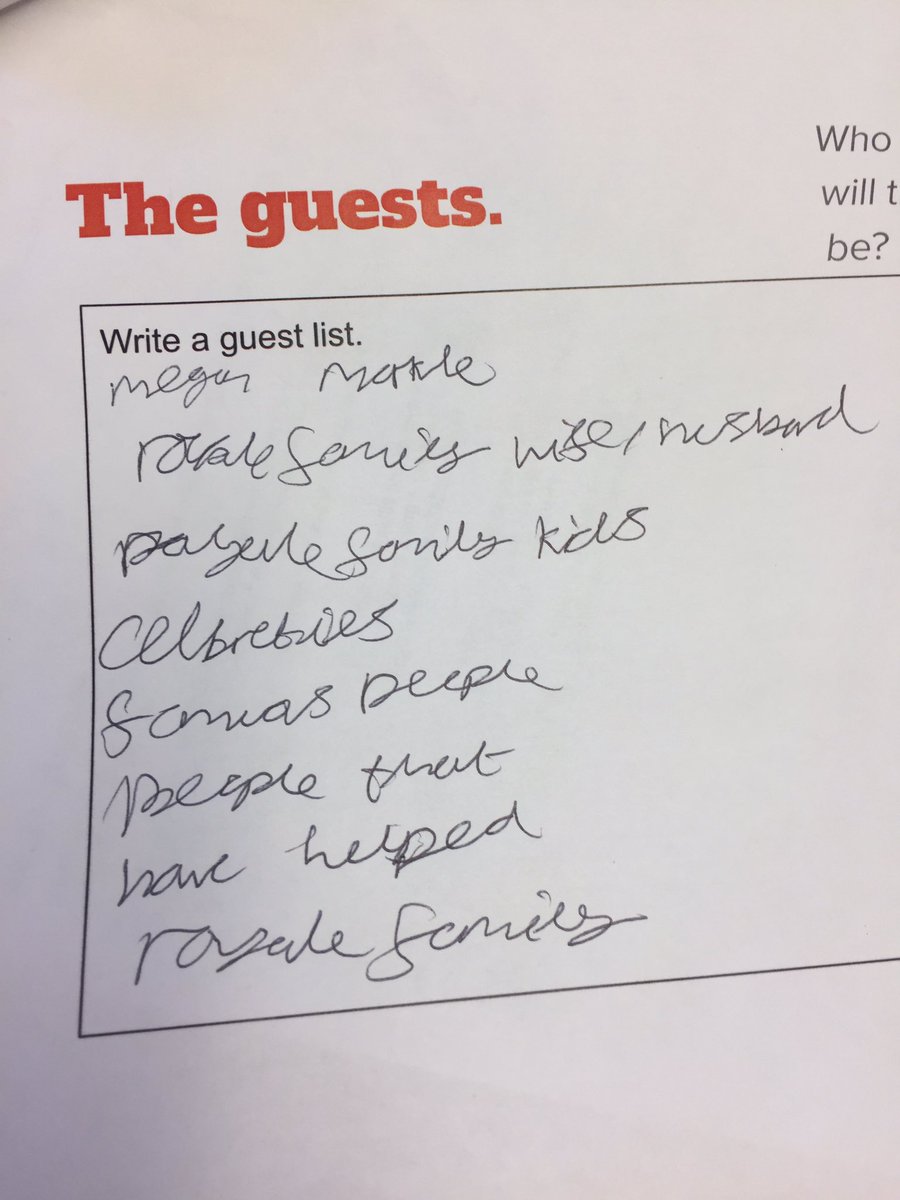 Who
The guests.
will t
be?
Write a guest list.
megan markle
royale family wife/husband
royale family kids
Celbrebties
famuas people
people that
have helped
royale family